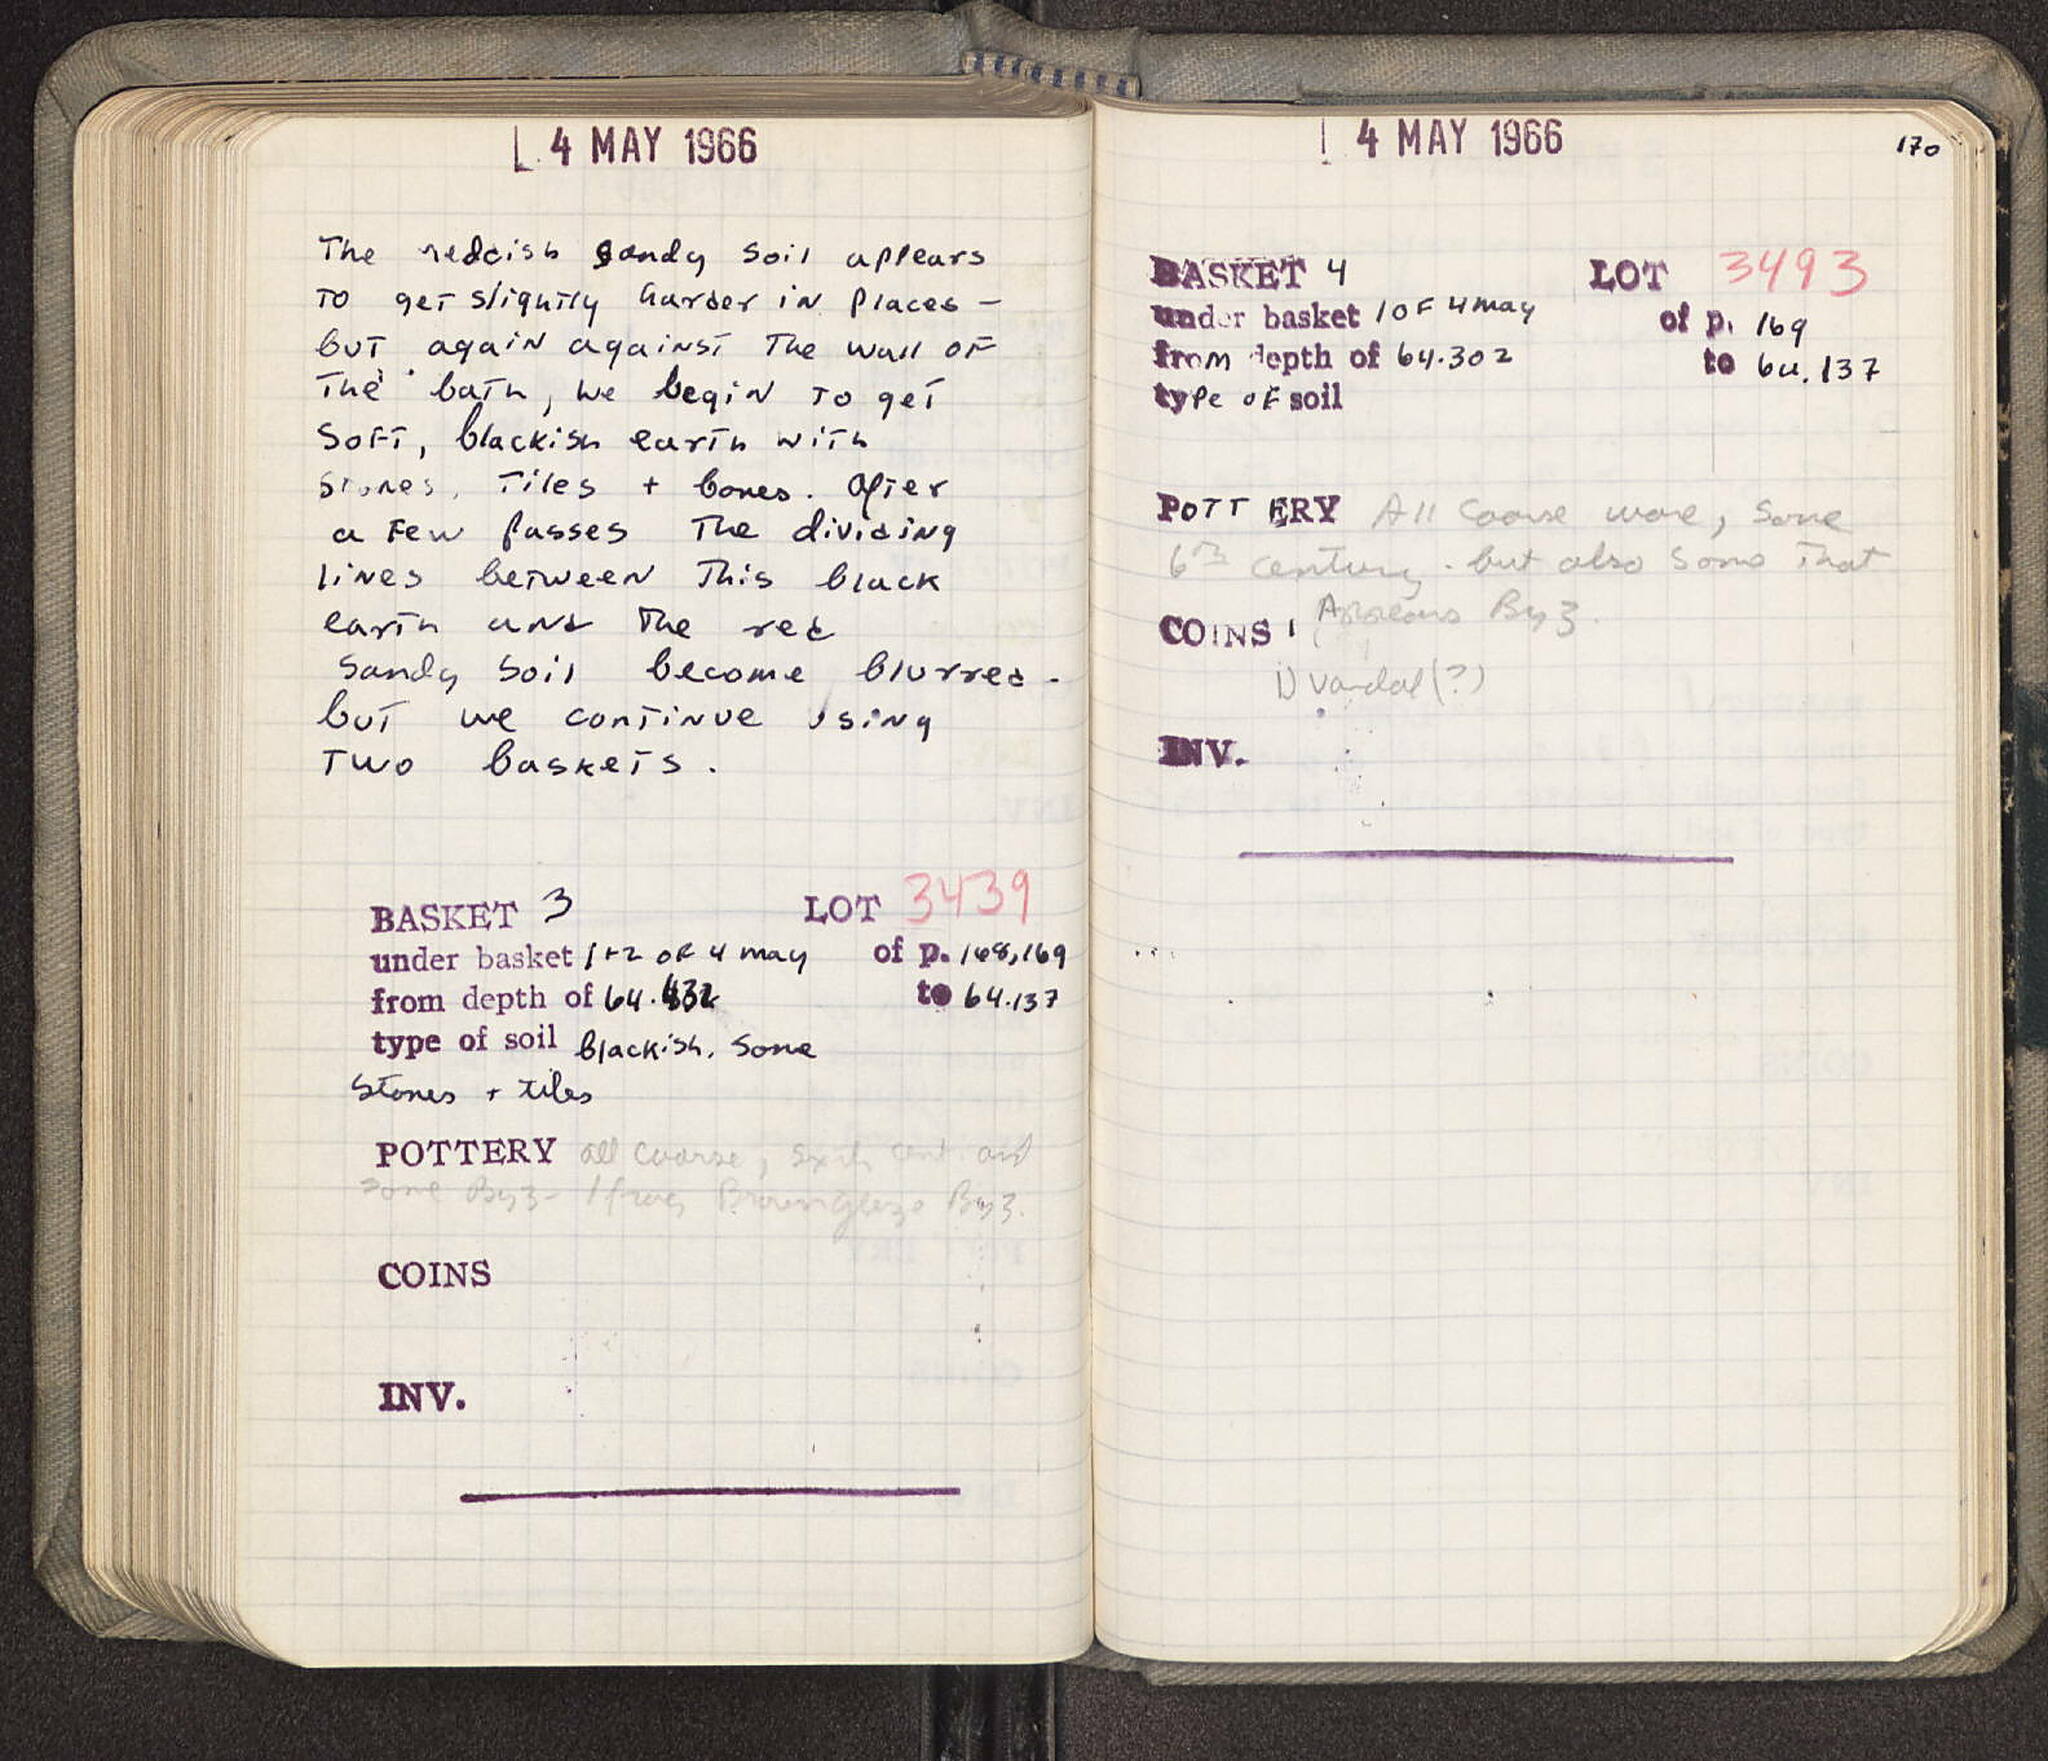 4 MAY 1966
The reddish sandy soil appears
to get slightly harder in places –
but again against the wall of
the bath, we begin to get
soft, blackish earth with
stones, tiles + bones. After
a few passes the dividing
lines between this black
earth and the red
sandy soil become blurred -
but we continue using
two baskets.
BASKET 3 LOT 3439
under basket 1+2 of 4 may of p. 168,169
from depth of 64.432 to 64.137
type of soil blackish. Some
stones + tiles
POTTERY all coarse, sixth cent. and
some Byz- 1 frag Brown glaze Byz.
COINS
INV.
4 MAY 1966 170
BASKET 4 LOT 3493
under basket 1 of 4 may of p. 169
from depth of 64.302 to 64.137
type of soil
POTTERY All coarse ware, some
6th century - but also some that
appears Byz.
COINS 1
1) Vandal (?)
INV.